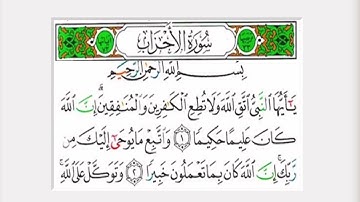 سُورَةُ الأَحْزَابِ
بِسْمِ اللَّهِ الرَّحْمَٰنِ الرَّحِيمِ
يَٰٓأَيُّهَا النَّبِيُّ اتَّقِ اللَّهَ وَلَا تُطِعِ الْكَٰفِرِينَ وَالْمُنَٰفِقِينَ ۗ إِنَّ اللَّهَ
كَانَ عَلِيمًا حَكِيمًا ١ وَاتَّبِعْ مَا يُوحَىٰٓ إِلَيْكَ مِن
رَّبِّكَ ۚ إِنَّ اللَّهَ كَانَ بِمَا تَعْمَلُونَ خَبِيرًا ٢ وَتَوَكَّلْ عَلَى اللَّهِ ۚ